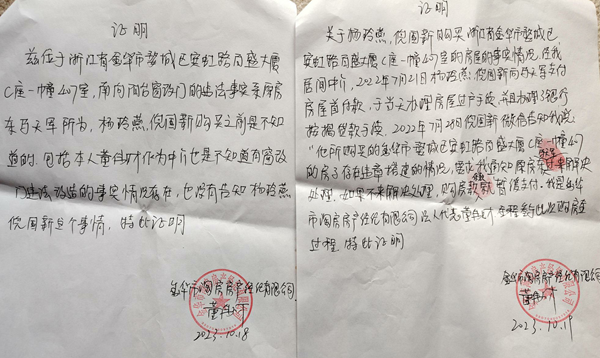 证明
兹位于浙江省金华市婺城区宾虹路同盛大厦
C座一幢407室,南向阳台窗改门的违法事实系原房
东马天军所为,杨玲燕,倪国新购买之前是不知
道的,包括本人董佳财作为中介也是不知道有窗改
门违法改造的事实情况存在,也没有告知杨玲燕
倪国新这个事情,特此证明
金华市淘房房产经纪有限公司
2023.10.18
证明
关于杨玲燕,倪国新购买浙江省金华市婺城区
宾虹路同盛大厦C座一幢407室的房屋的事实情况,经我
居间中介,2022年7月21日杨玲燕,倪国新向马天军支付
房屋首付款,于当天办理房屋过户手续,并且办理了银行
按揭贷款手续,2022年7月28日倪国新微信告知我说
"他所购买的金华市婺城区宾虹路同盛大厦C座一幢407
的房子存在违章搭建的情况,要求我通知原房东
处理,如果不来解决处理,购房款暂停支付。我是金华
市淘房房产经纪有限公司法人代表董佳财全程参与此次购房全
过程,特此证明
金华市淘房房产经纪有限公司
2023.10.11